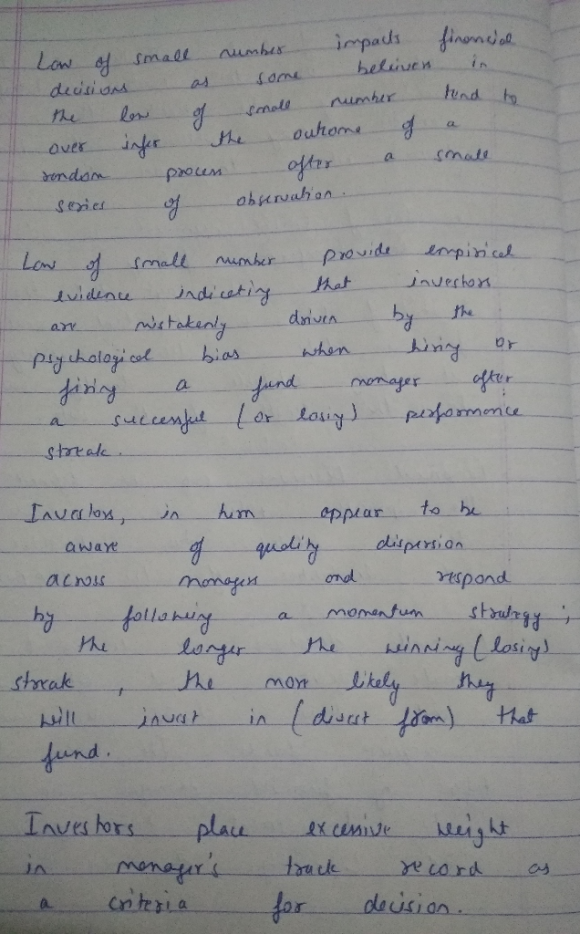 Law of small number impacts financial
decisions as some believers in
the law of small number tend to
over infer the outcome of a
random process after a small
series of observation.
Law of small number provide empirical
evidence indicating that investors
are mistakenly driven by the
psychological bias when hiring or
firing a fund manager after
a successful (or losing) performance
streak.
Investors, in turn appear to be
aware of quality dispersion
across managers and respond
by following a momentum strategy;
the longer the winning (losing)
streak, the more likely they
will invest in (divest from) that
fund.
Investors place excessive weight
in manager's track record as
a criteria for decision.